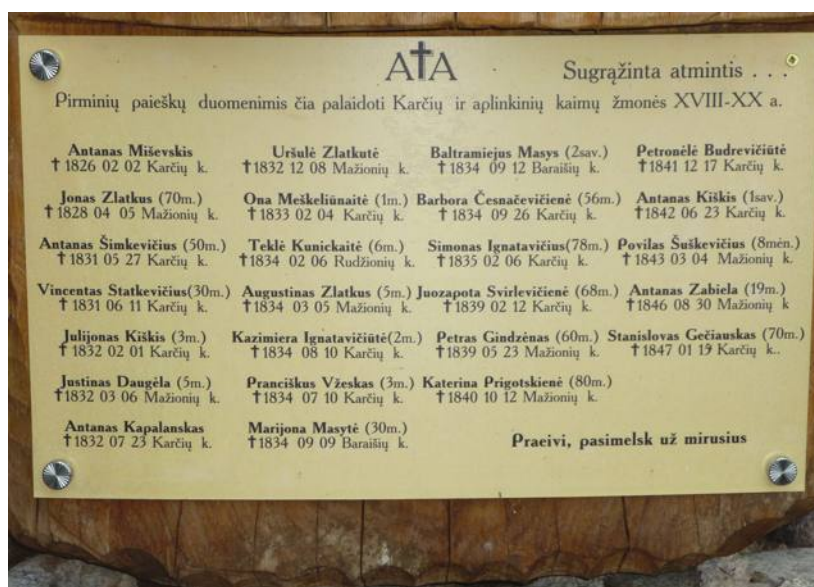 A†A
Sugrąžinta atmintis . . .
Pirminių paieškų duomenimis čia palaidoti Karčių ir aplinkinių kaimų žmonės XVIII-XX a.
Antanas Miševskis
†1826 02 02 Karčių k.
Jonas Zlatkus (70m.)
†1828 04 05 Mažionių k.
Antanas Šimkevičius (50m.)
†1831 05 27 Karčių k.
Vincentas Statkevičius(30m.)
†1831 06 11 Karčių k.
Julijonas Kiškis (3m.)
†1832 02 01 Karčių k.
Justinas Daugėla (5m.)
†1832 03 06 Mažionių k.
Antanas Kapalanskas
†1832 07 23 Karčių k.
Uršulė Zlatkutė
†1832 12 08 Mažionių k.
Ona Meškeliūnaitė (1m.)
†1833 02 04 Karčių k.
Teklė Kunickaitė (6m.)
†1834 02 06 Rudžionių k.
Augustinas Zlatkus (5m.)
†1834 03 05 Mažionių k.
Kazimiera Ignatavičiūtė(2m.)
†1834 08 10 Karčių k.
Pranciškus Vžeskas (3m.)
†1834 07 10 Karčių k.
Marijona Masytė (30m.)
†1834 09 09 Baraišių k.
Baltramiejus Masys (2sav.)
†1834 09 12 Baraišių k.
Barbora Česnačevičienė (56m.)
†1834 09 26 Karčių k.
Simonas Ignatavičius(78m.)
†1835 02 06 Karčių k.
Juozapota Svirlevičienė (68m.)
†1839 02 12 Karčių k.
Petras Gindzėnas (60m.)
†1839 05 23 Mažionių k.
Katerina Prigotskienė (80m.)
†1840 10 12 Mažionių k.
Petronėlė Budrevičiūtė
†1841 12 17 Karčių k.
Antanas Kiškis (1sav.)
†1842 06 23 Karčių k.
Povilas Šuškevičius (8mėn.)
†1843 03 04 Mažionių k.
Antanas Zabiela (19m.)
†1846 08 30 Mažionių k.
Stanislovas Gečiauskas (70m.)
†1847 01 19 Karčių k..
Praeivi, pasimelsk už mirusius